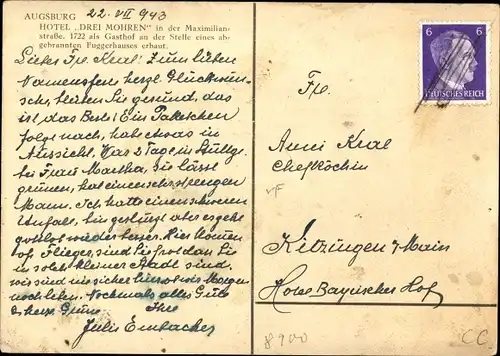 AUGSBURG 22. VII 943
HOTEL „DREI MOHREN" in der Maximilian-
straße. 1722 als Gasthof an der Stelle eines ab-
gebrannten Fuggerhauses erbaut.
Liebes Frl. Kral! Zum lieben
Namensfest herzl. Glückwün-
sche, bleiben Sie gesund, das
ist das Beste! Ein Päckchen
folgt nach, habe etwas in
Aussicht. War 2 Tage in Stuttg.
bei Frau Martha, sie lässt
grüssen, hat einen sehr strengen
Mann. Ich hatte einen schweren
Unfall, bin gestürzt aber es geht
gottlob wieder besser. Hier kommen
oft Flieger, sind Sie froh dass Sie
in solch kleiner Stadt sind,
wir sind nie sicher ob wir Morgen
noch leben. Nochmals alles Gute
& herzl. Grüsse Ihre
Julie
6 6
DEUTSCHES REICH
Frl.
Anni Kral
Chefköchin
Kitzingen a/Main
Hotel Bayrischer Hof
vF
8900
CC